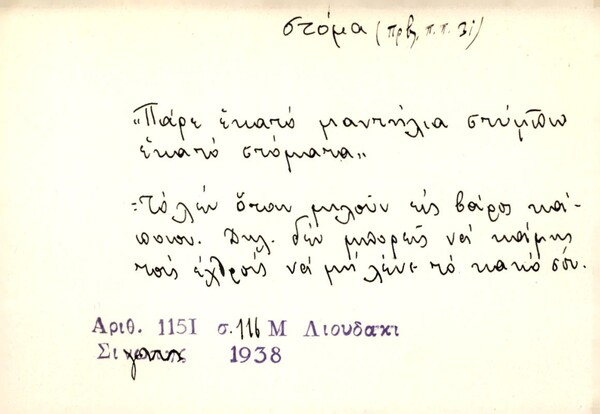 στόμα (πρβ. π.π. 3i)
"Πάρε ἑκατό μαντήλια στούμπω
ἑκατό στόματα"
=Τὸ λέν ὅταν μιλοῦν εἰς βάρος κά-
ποιου. Δηλ. δέν μπορεῖς νά κάμῃς
τούς ἐχθρούς νά μή λένε τό κακό σου.
Αριθ. 1151 σ. 116 Μ Λιουδακι
1938